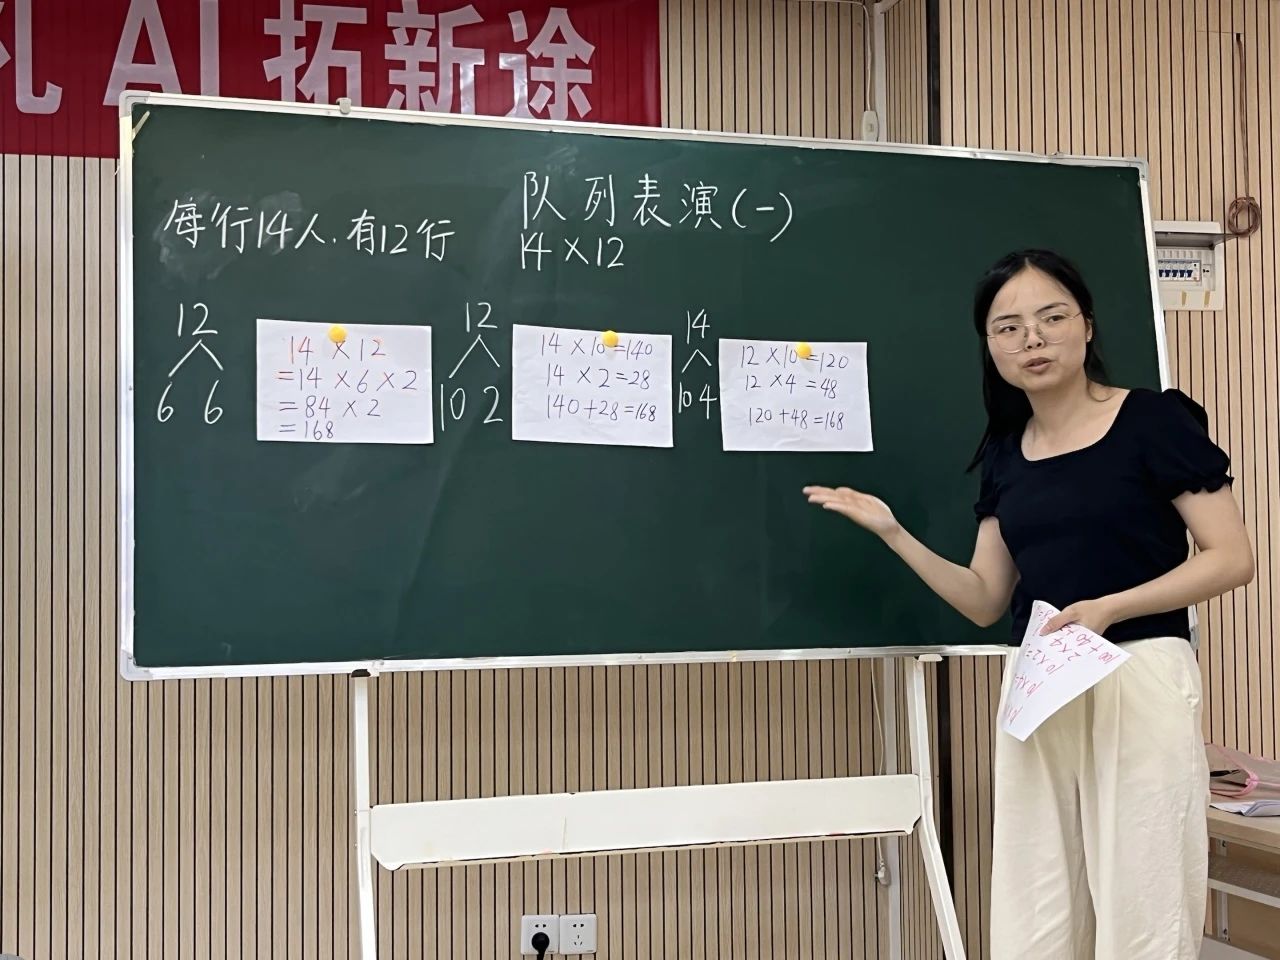 AI拓新途
队列表演(一)
每行14人.有12行
14×12
12
6 6
14×12
=14×6×2
=84×2
=168
12
10 2
14×10=140
14×2=28
140+28=168
14
10 4
12×10=120
12×4=48
120+48=168